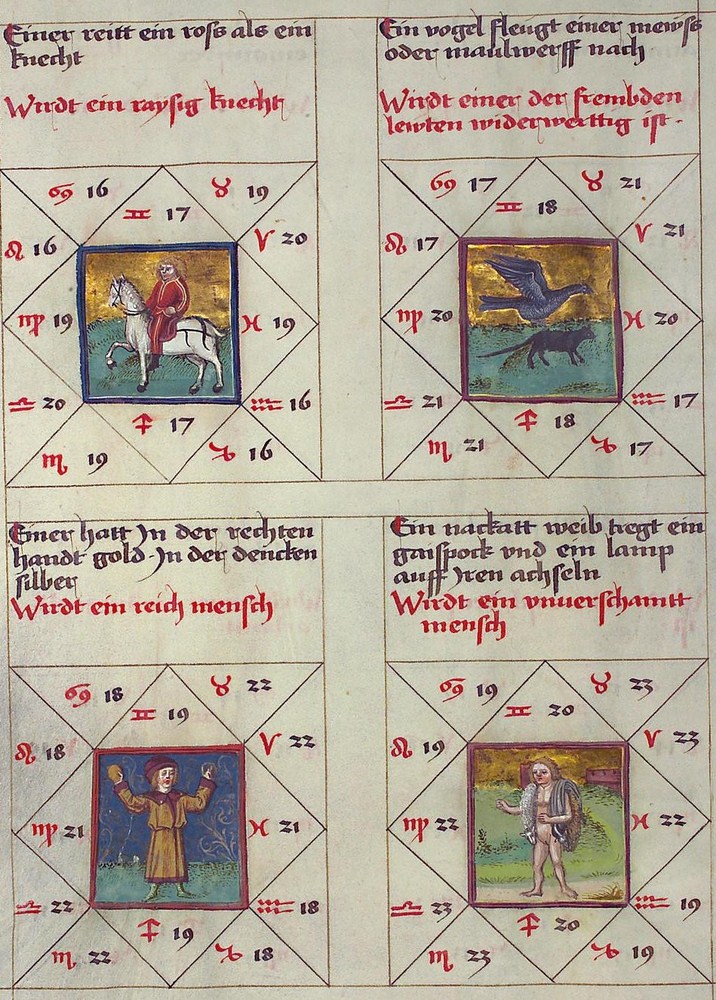 Einer reitt ein ross als ein
knecht
Wirdt ein raysig knecht
♋ 16 ♉ 19
♊ 17
♌ 16 ♈ 20
♍ 19 ♓ 19
♎ 20 ♒ 16
♐ 17
♏ 19 ♑ 16
Ein vogel fleugt einer mewss
oder maulwerff nach
Wirdt einer der frembden
lewten widerwerttig ist.
♋ 17 ♉ 21
♊ 18
♌ 17 ♈ 21
♍ 20 ♓ 20
♎ 21 ♒ 17
♐ 18
♏ 21 ♑ 17
Einer hatt Jn der rechten
handt gold. Jn der dencken
silber
Wirdt ein reich mensch
♋ 18 ♉ 22
♊ 19
♌ 18 ♈ 22
♍ 21 ♓ 21
♎ 22 ♒ 18
♐ 19
♏ 22 ♑ 18
Ein nackatt weib tregt ein
gaispock vnd ein lamp
auff Jren achseln
Wirdt ein vnuerschamtt
mensch
♋ 19 ♉ 23
♊ 20
♌ 19 ♈ 23
♍ 22 ♓ 22
♎ 23 ♒ 19
♐ 20
♏ 23 ♑ 19